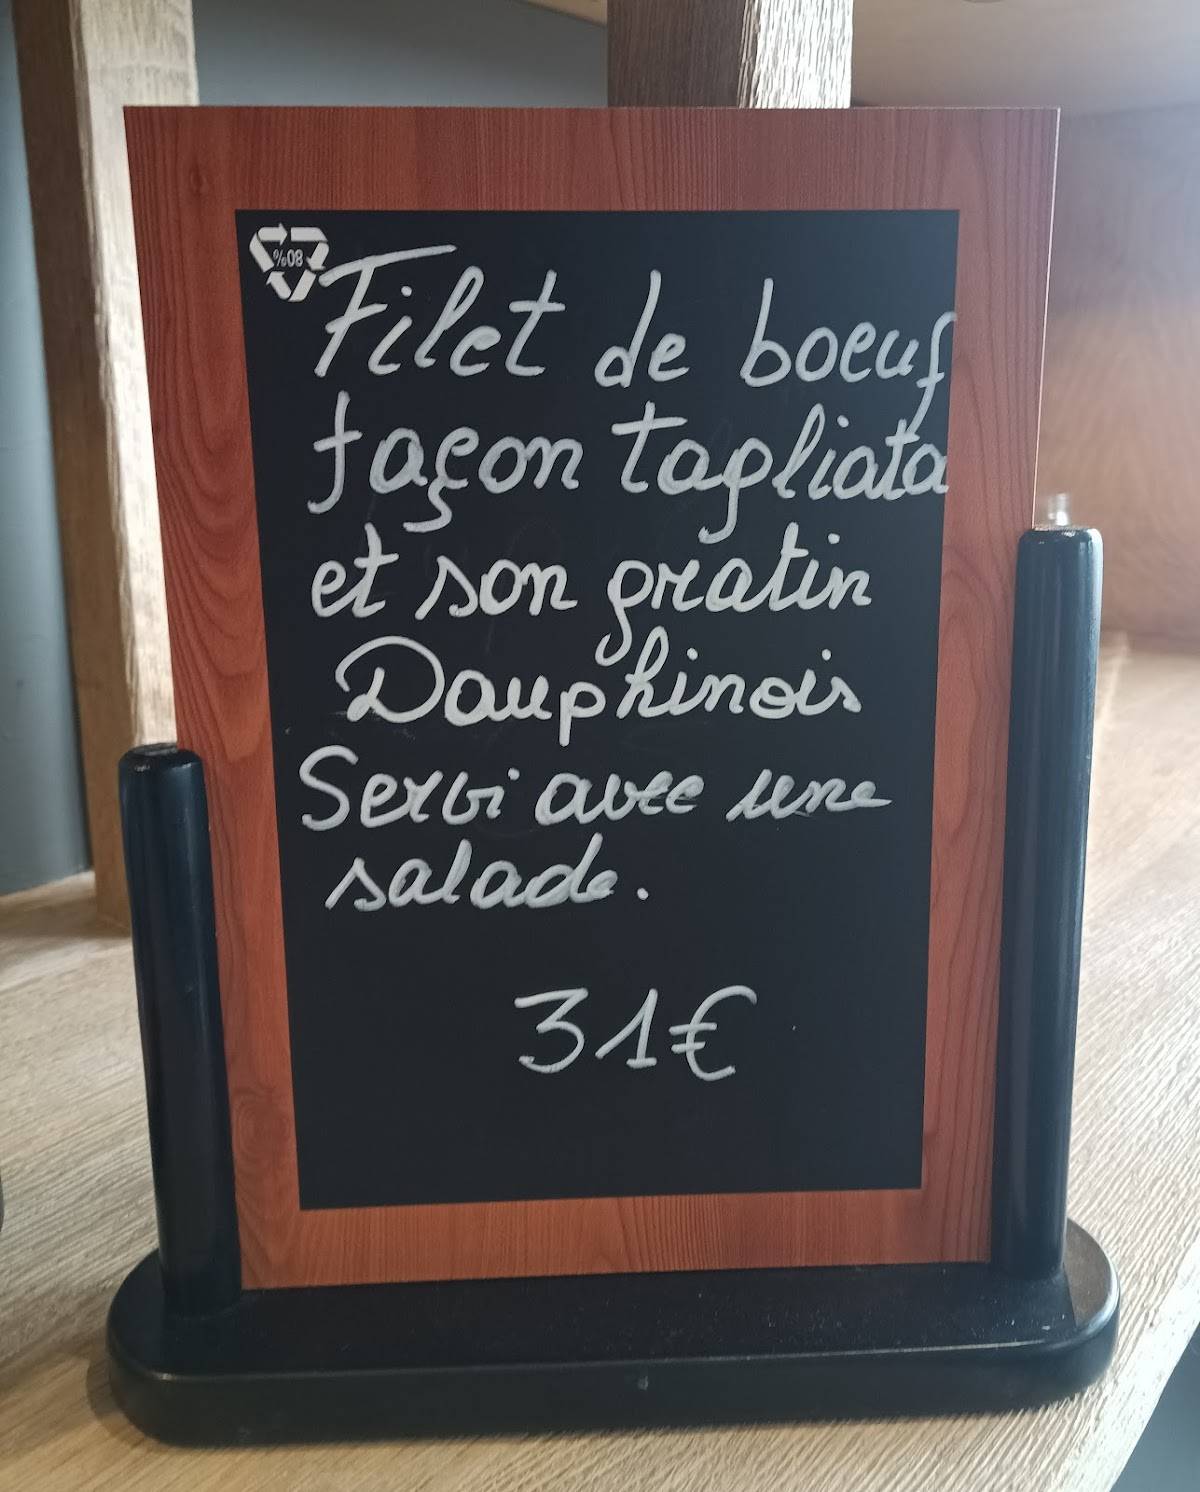 %08
Filet de boeuf
façon tagliata
et son gratin
Dauphinois
Servi avec une
salade.
31€